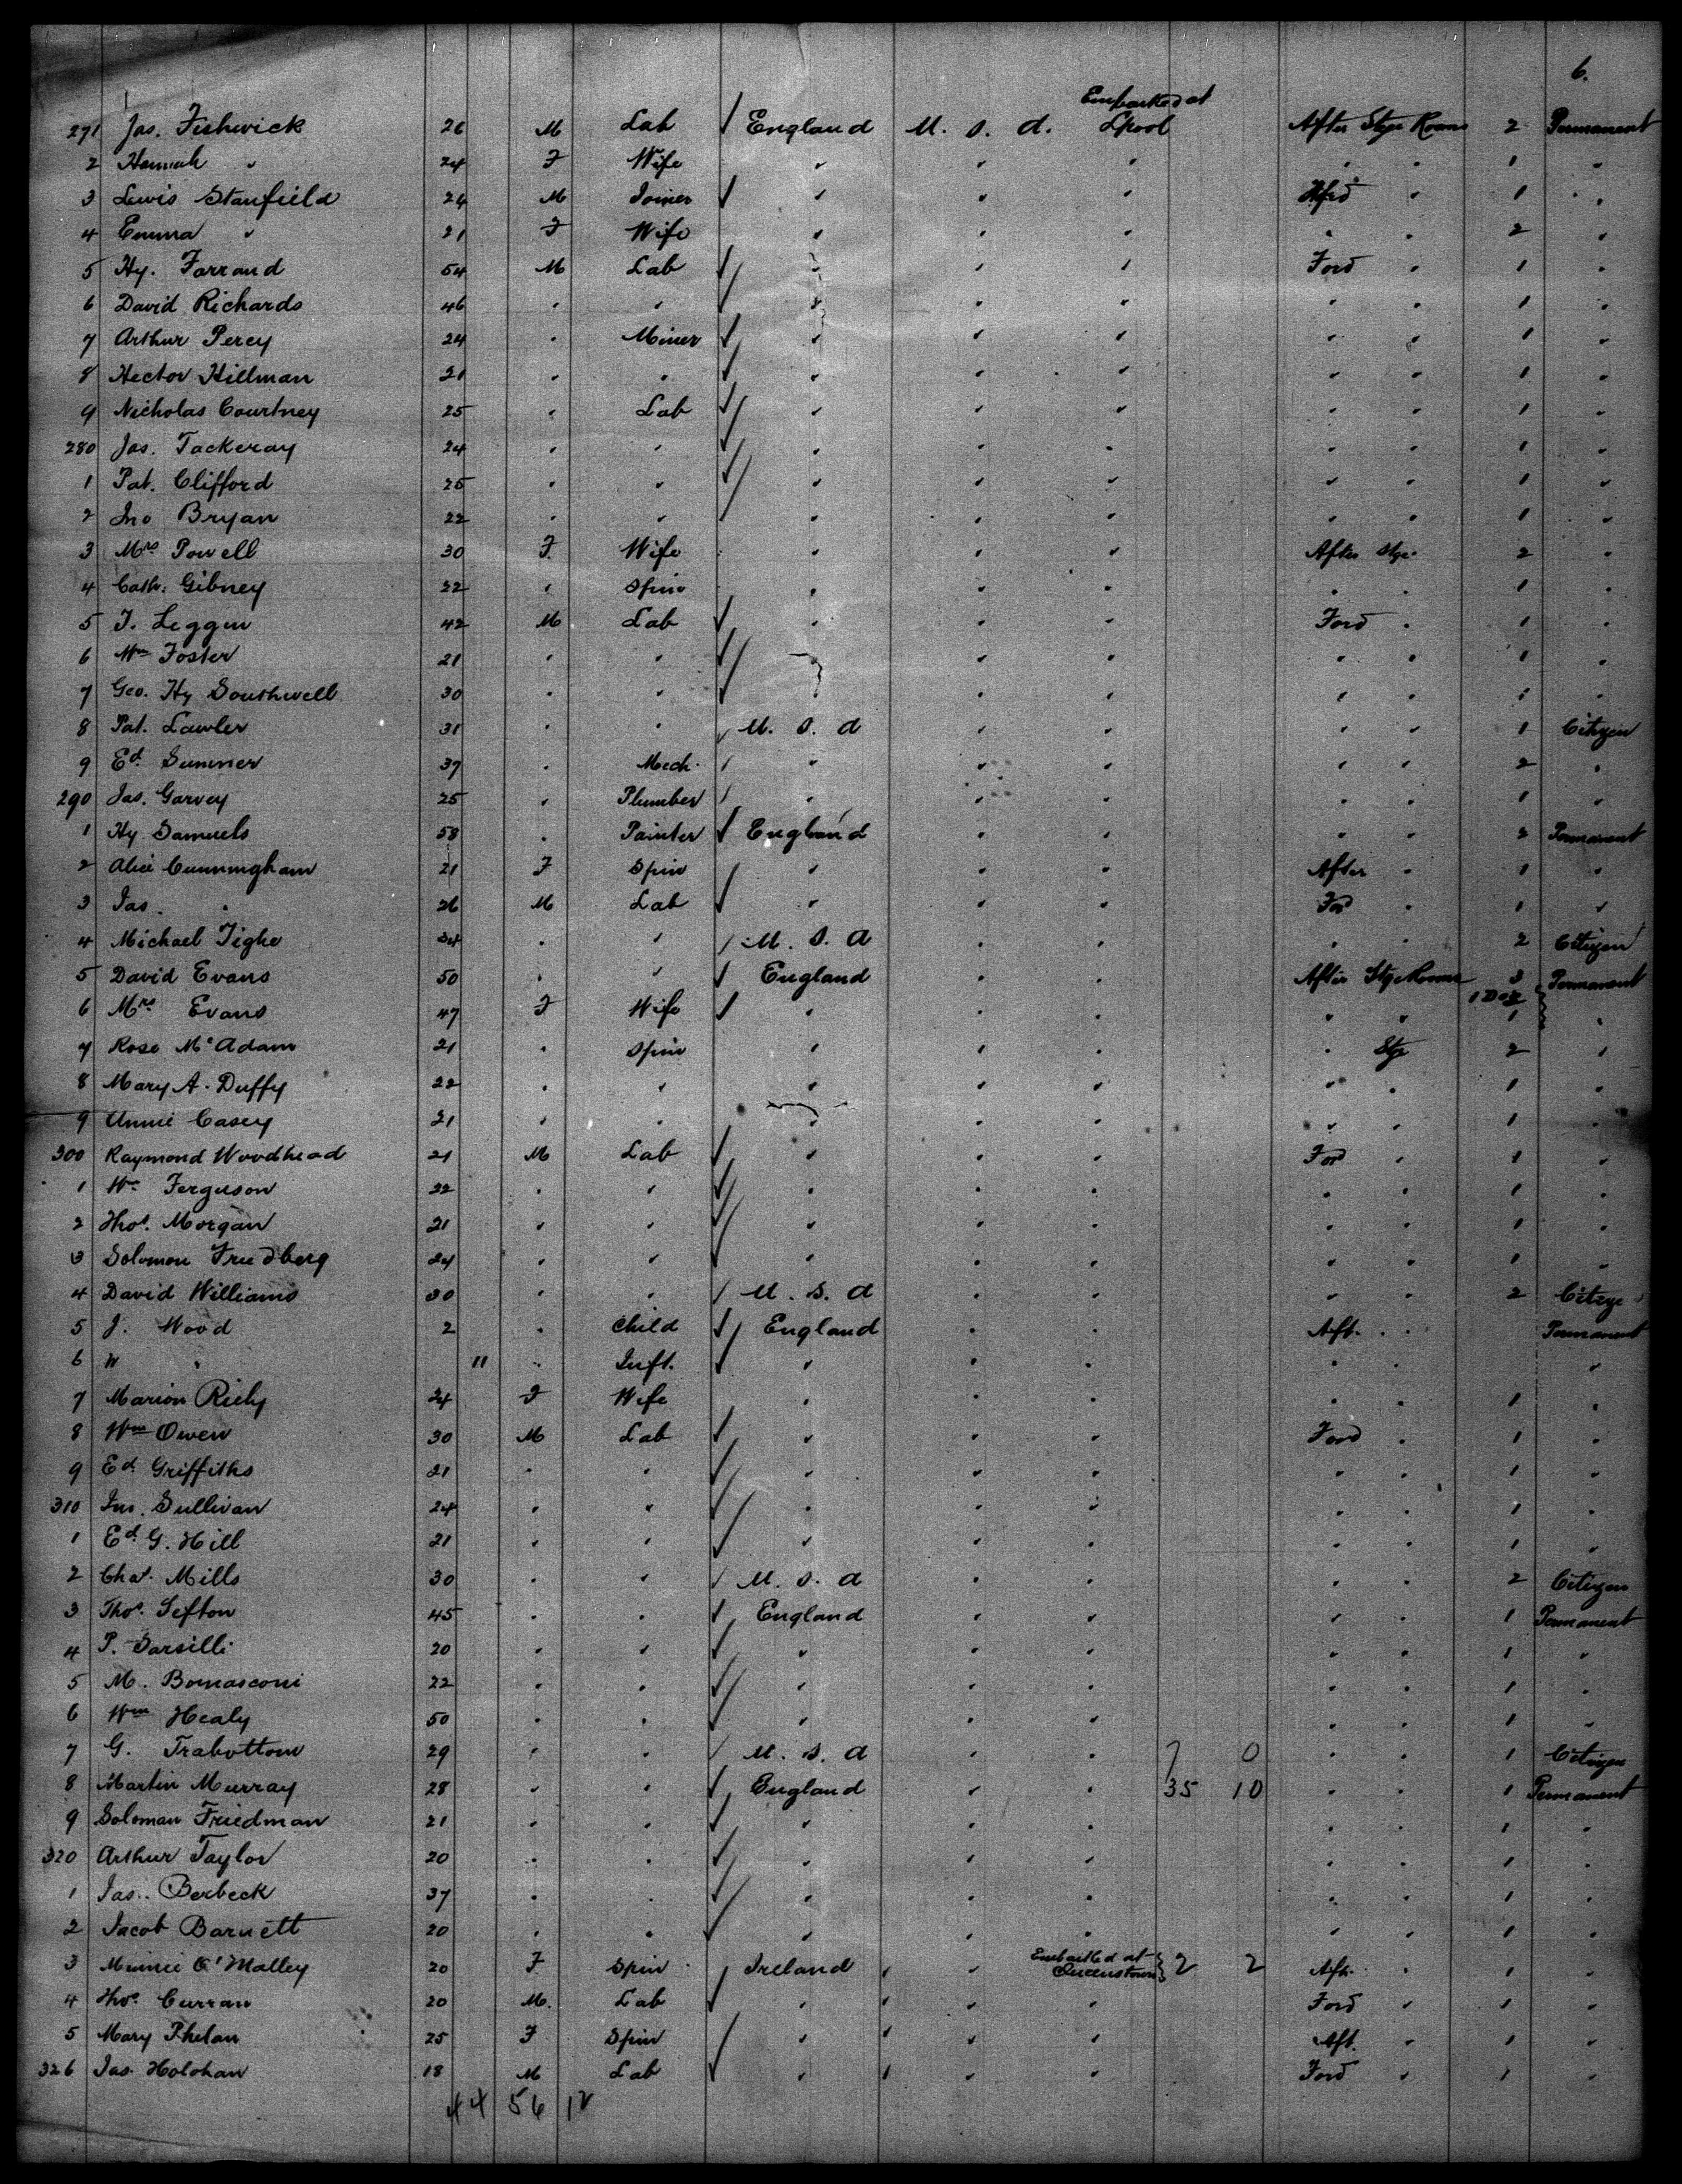 6.
Embarked at
271 Jas. Fishwick 26 M Lab England U. S. A. Lpool After Stge Rooms 2 Permanent
2 Hannah " 24 F Wife " " " " " 1 "
3 Lewis Stanfield 24 M Joiner " " " " 1 "
4 Emma " 21 F Wife " " " " " 2 "
5 Hy. Farrand 54 M Lab " " " Ford " 1 "
6 David Richards 46 " " " " " " " 1 "
7 Arthur Percy 24 " Miner " " " " " 1 "
8 Hector Hillman 21 " " " " " " " 1 "
9 Nicholas Courtney 25 " Lab " " " " " 1 "
280 Jas. Tackeray 24 " " " " " " " 1 "
1 Pat. Clifford 25 " " " " " " " 1 "
2 Jno Bryan 22 " " " " " " " 1 "
3 Mrs Powell 30 F. Wife " " " After Stge. 2 "
4 Cath. Gibney 22 " Spin " " " " " 1 "
5 T. Leggen 42 M Lab " " " Ford " 1 "
6 Wm Foster 21 " " " " " " " 1 "
7 Geo. Hy Southwell 30 " " " " " " " 1 "
8 Pat. Lawler 31 " " U. S. A " " " " 1 Citizen
9 Ed. Sumner 37 " Mech. " " " " " 2 "
290 Jas. Garvey 25 " Plumber " " " " " 1 "
1 Hy. Samuels 58 " Painter England " " " " 2 Permanent
2 Alice Cunningham 21 F Spin " " " After " 1 "
3 Jas. " 26 M Lab " " " For " 1 "
4 Michael Tighe 34 " " U. S. A " " " " 2 Citizen
5 David Evans 50 " " England " " After Stge Rooms 3 Permanent
6 Mrs Evans 47 F Wife " " " " " 1 "
7 Rose McAdam 21 " Spin " " " " Stge 2 "
8 Mary A. Duffy 22 " " " " " " " 1 "
9 Annie Casey 21 " " " " " " " 1 "
300 Raymond Woodhead 21 M Lab " " " For " 1 "
1 Wm Ferguson 22 " " " " " " " 1 "
2 Thos. Morgan 21 " " " " " " " 1 "
3 Solomon Friedberg 24 " " " " " " " 1 "
4 David Williams 30 " " U. S. A " " " " 2
5 J. Wood 2 " Child England " " Aft. " Permanent
6 W " 11 " Inft. " " " " "
7 Marion Riely 24 F Wife " " " " " 1 "
8 Wm Owen 30 M Lab " " " Ford " 1 "
9 Ed. Griffiths 21 " " " " " " " 1 "
310 Jno. Sullivan 24 " " " " " " " 1 "
1 Ed. G. Hill 21 " " " " " " " 1 "
2 Chas. Mills 30 " " U. S. A " " " " 2 Citizen
3 Thos. Sefton 45 " " England " " " " 1 Permanent
4 P. Sarsilli 20 " " " " " " " 1 "
5 M. Bomasconi 22 " " " " " " " 1 "
6 Wm Healy 50 " " " " " " " 1 "
7 G. Trabottom 29 " " U. S. A " " 7 0 " " 1 Citizen
8 Martin Murray 28 " " England " " 35 10 " " 1 Permanent
9 Soloman Friedman 21 " " " " " " " 1 "
320 Arthur Taylor 20 " " " " " " " 1 "
1 Jas. Berbeck 37 " " " " " " " 1 "
2 Jacob Barnett 20 " " " " " " " 1 "
3 Minnie O'Malley 20 F Spin Ireland " Embarked at Queenstown 2 2 Aft. " 1 "
4 Thos. Curran 20 M. Lab " " " Ford " 1 "
5 Mary Phelan 25 F Spin " " " Aft. " 1 "
326 Jas. Holohan 18 M Lab " " " Ford " 1 "
44 56 12